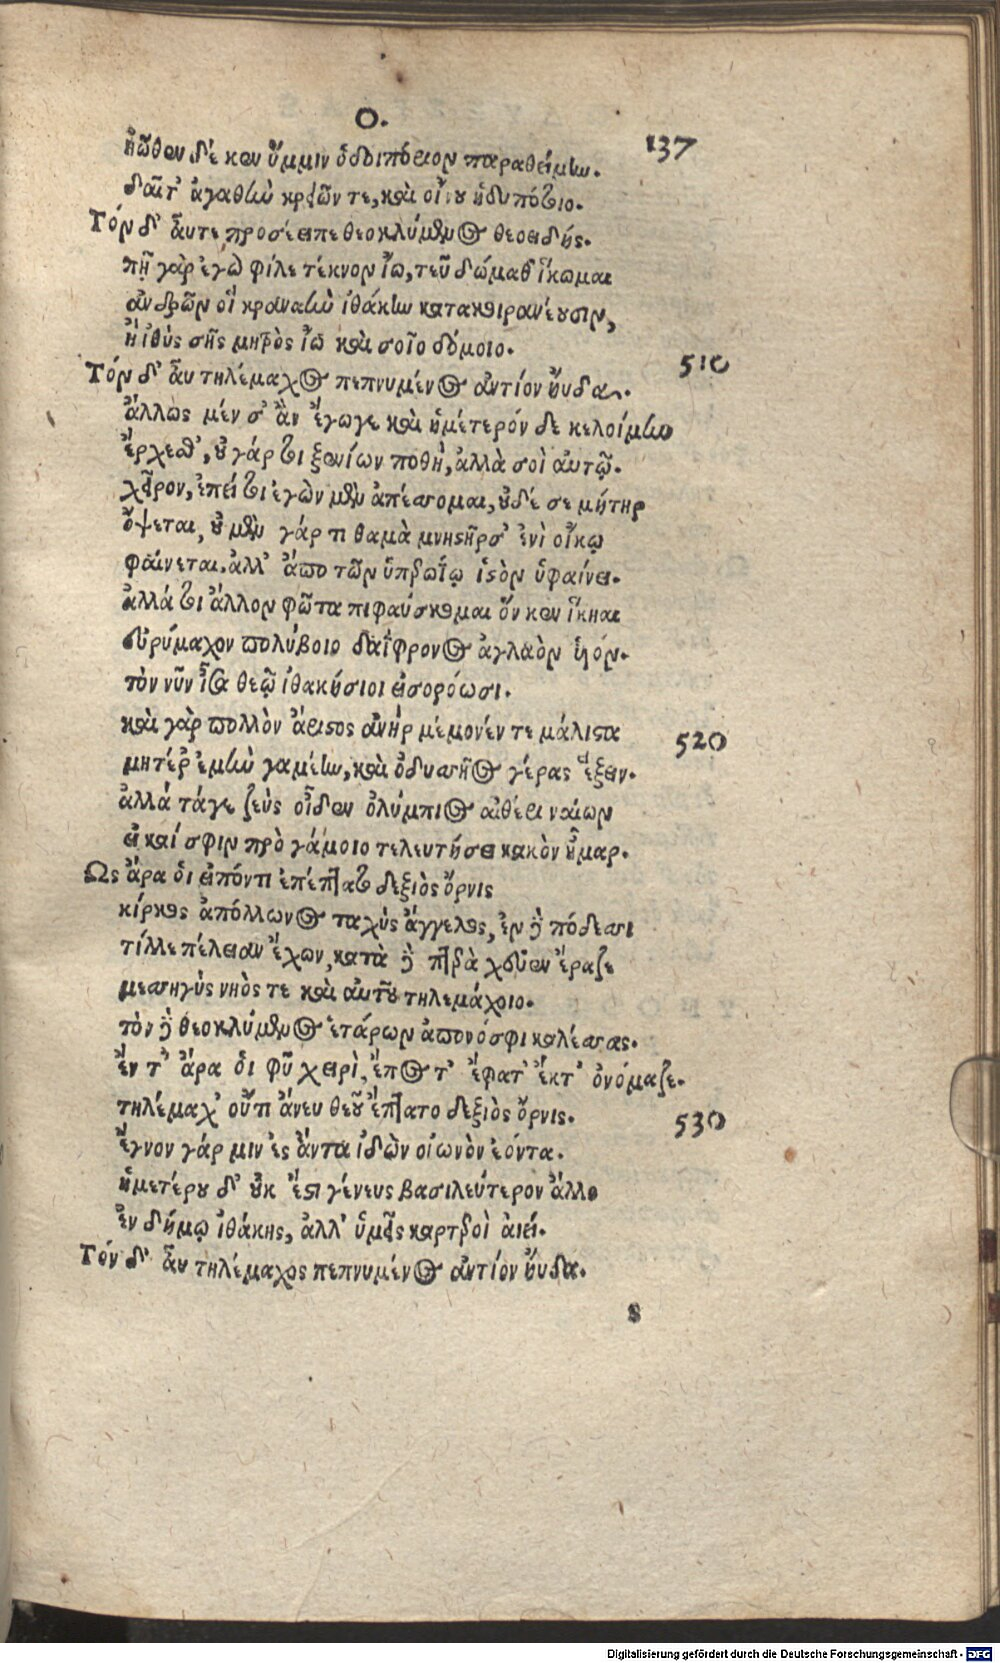 Ο.
137
ἠῶθεν δέ κεν ὔμμιν ὁδοιπόριον παραθείμην.
δαῖτ' ἀγαθὴν κρεῶν τε, καὶ οἴνου ἡδυπότοιο.
Τόν δ' αὖτε προσέειπε θεοκλύμενος θεοειδής.
πῆ γὰρ ἐγὼ φίλε τέκνον ἴω, τεῦ δώμαθ' ἵκωμαι
ἀνδρῶν οἳ κραναὴν ἰθάκην κατακοιρανέουσιν,
ἢ ἰθὺς σῆς μητρὸς ἴω καὶ σοῖο δόμοιο.
510
Τόν δ' αὖ τηλέμαχος πεπνυμένος ἀντίον ηὔδα.
ἄλλως μέν σ' ἂν ἔγωγε καὶ ἡμέτερόν δε κελοίμην
ἔρχεσθ', οὐ γάρ τι ξενίων ποθή, ἀλλὰ σοὶ αὐτῷ.
χεῖρον, ἐπεί τοι ἐγὼν μὲν ἀπέσσομαι, οὐδέ σε μήτηρ
ὄψεται, οὐ μὲν γάρ τι θαμὰ μνηστῆρσ' ἐνὶ οἴκῳ
φαίνεται. ἀλλ' ἄπο τῶν ὑπερωΐῳ ἱστὸν ὑφαίνει.
ἀλλά τοι ἄλλον φῶτα πιφαύσκομαι ὅν κεν ἵκηαι
εὐρύμαχον πολύβοιο δαΐφρονος ἀγλαὸν υἱόν.
τὸν νῦν ἶσα θεῷ ἰθακήσιοι εἰσορόωσι.
καὶ γὰρ πολλὸν ἄριστος ἀνήρ μέμονέν τε μάλιστα
520
μητέρ' ἐμὴν γαμέειν, καὶ ὀδυσσῆος γέρας ἕξειν.
ἀλλά τάγε ζεύς οἶδεν ὀλύμπιος αἰθέρι ναίων
εἰ καί σφιν πρὸ γάμοιο τελευτήσει κακὸν ἦμαρ.
Ως ἄρα ὁι εἰπόντι ἐπέπτατο δεξιὸς ὄρνις
κίρκος ἀπόλλωνος ταχὺς ἄγγελος, ἐν δὲ πόδεσσι
τίλλε πέλειαν ἔχων, κατὰ δὲ πτερὰ χεῦεν ἔραζε
μεσσηγὺς νηὸς τε καὶ αὐτοῦ τηλεμάχοιο.
τὸν δὲ θεοκλύμενος ἑτάρων ἀπονόσφι καλέσσας.
ἔν τ' ἄρα ὁι φῦ χειρὶ, ἔπος τ' ἔφατ' ἔκτ' ὀνόμαζε.
τηλέμαχ' οὔτι ἄνευ θεοῦ ἔπτατο δεξιὸς ὄρνις.
530
ἔγνον γάρ μιν ἐς ἄντα ἰδὼν οἰωνὸν ἐόντα.
ἡμετέρου δ' οὐκ ἔστι γένευς βασιλεύτερον ἄλλο
ἐν δήμῳ ἰθάκης, ἀλλ' ὑμεῖς καρτεροὶ αἰεί.
Τόν δ' αὖ τηλέμαχος πεπνυμένος ἀντίον ηὔδα.
s
Digitalisierung gefördert durch die Deutsche Forschungsgemeinschaft - DFG